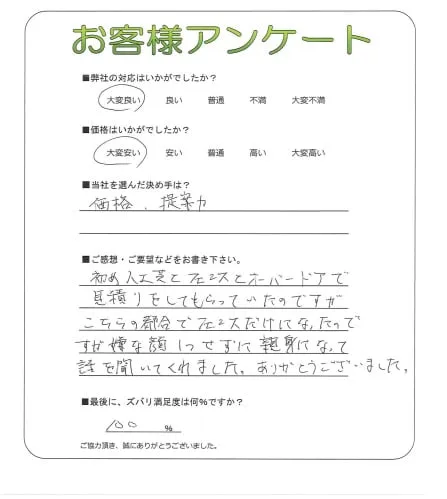 お客様アンケート
■弊社の対応はいかがでしたか？
大変良い 良い 普通 不満 大変不満
■価格はいかがでしたか？
大変安い 安い 普通 高い 大変高い
■当社を選んだ決め手は？
価格、提案力
■ご感想・ご要望などをお書き下さい。
初め人工芝とフェンスとオーバードアで
見積りをしてもらっていたのですが
こちらの都合でフェンスだけになったので
すが嫌な顔1つせずに親身になって
話を聞いてくれました。ありがとうございました。
■最後に、ズバリ満足度は何%ですか？
100 %
ご協力頂き、誠にありがとうございました。